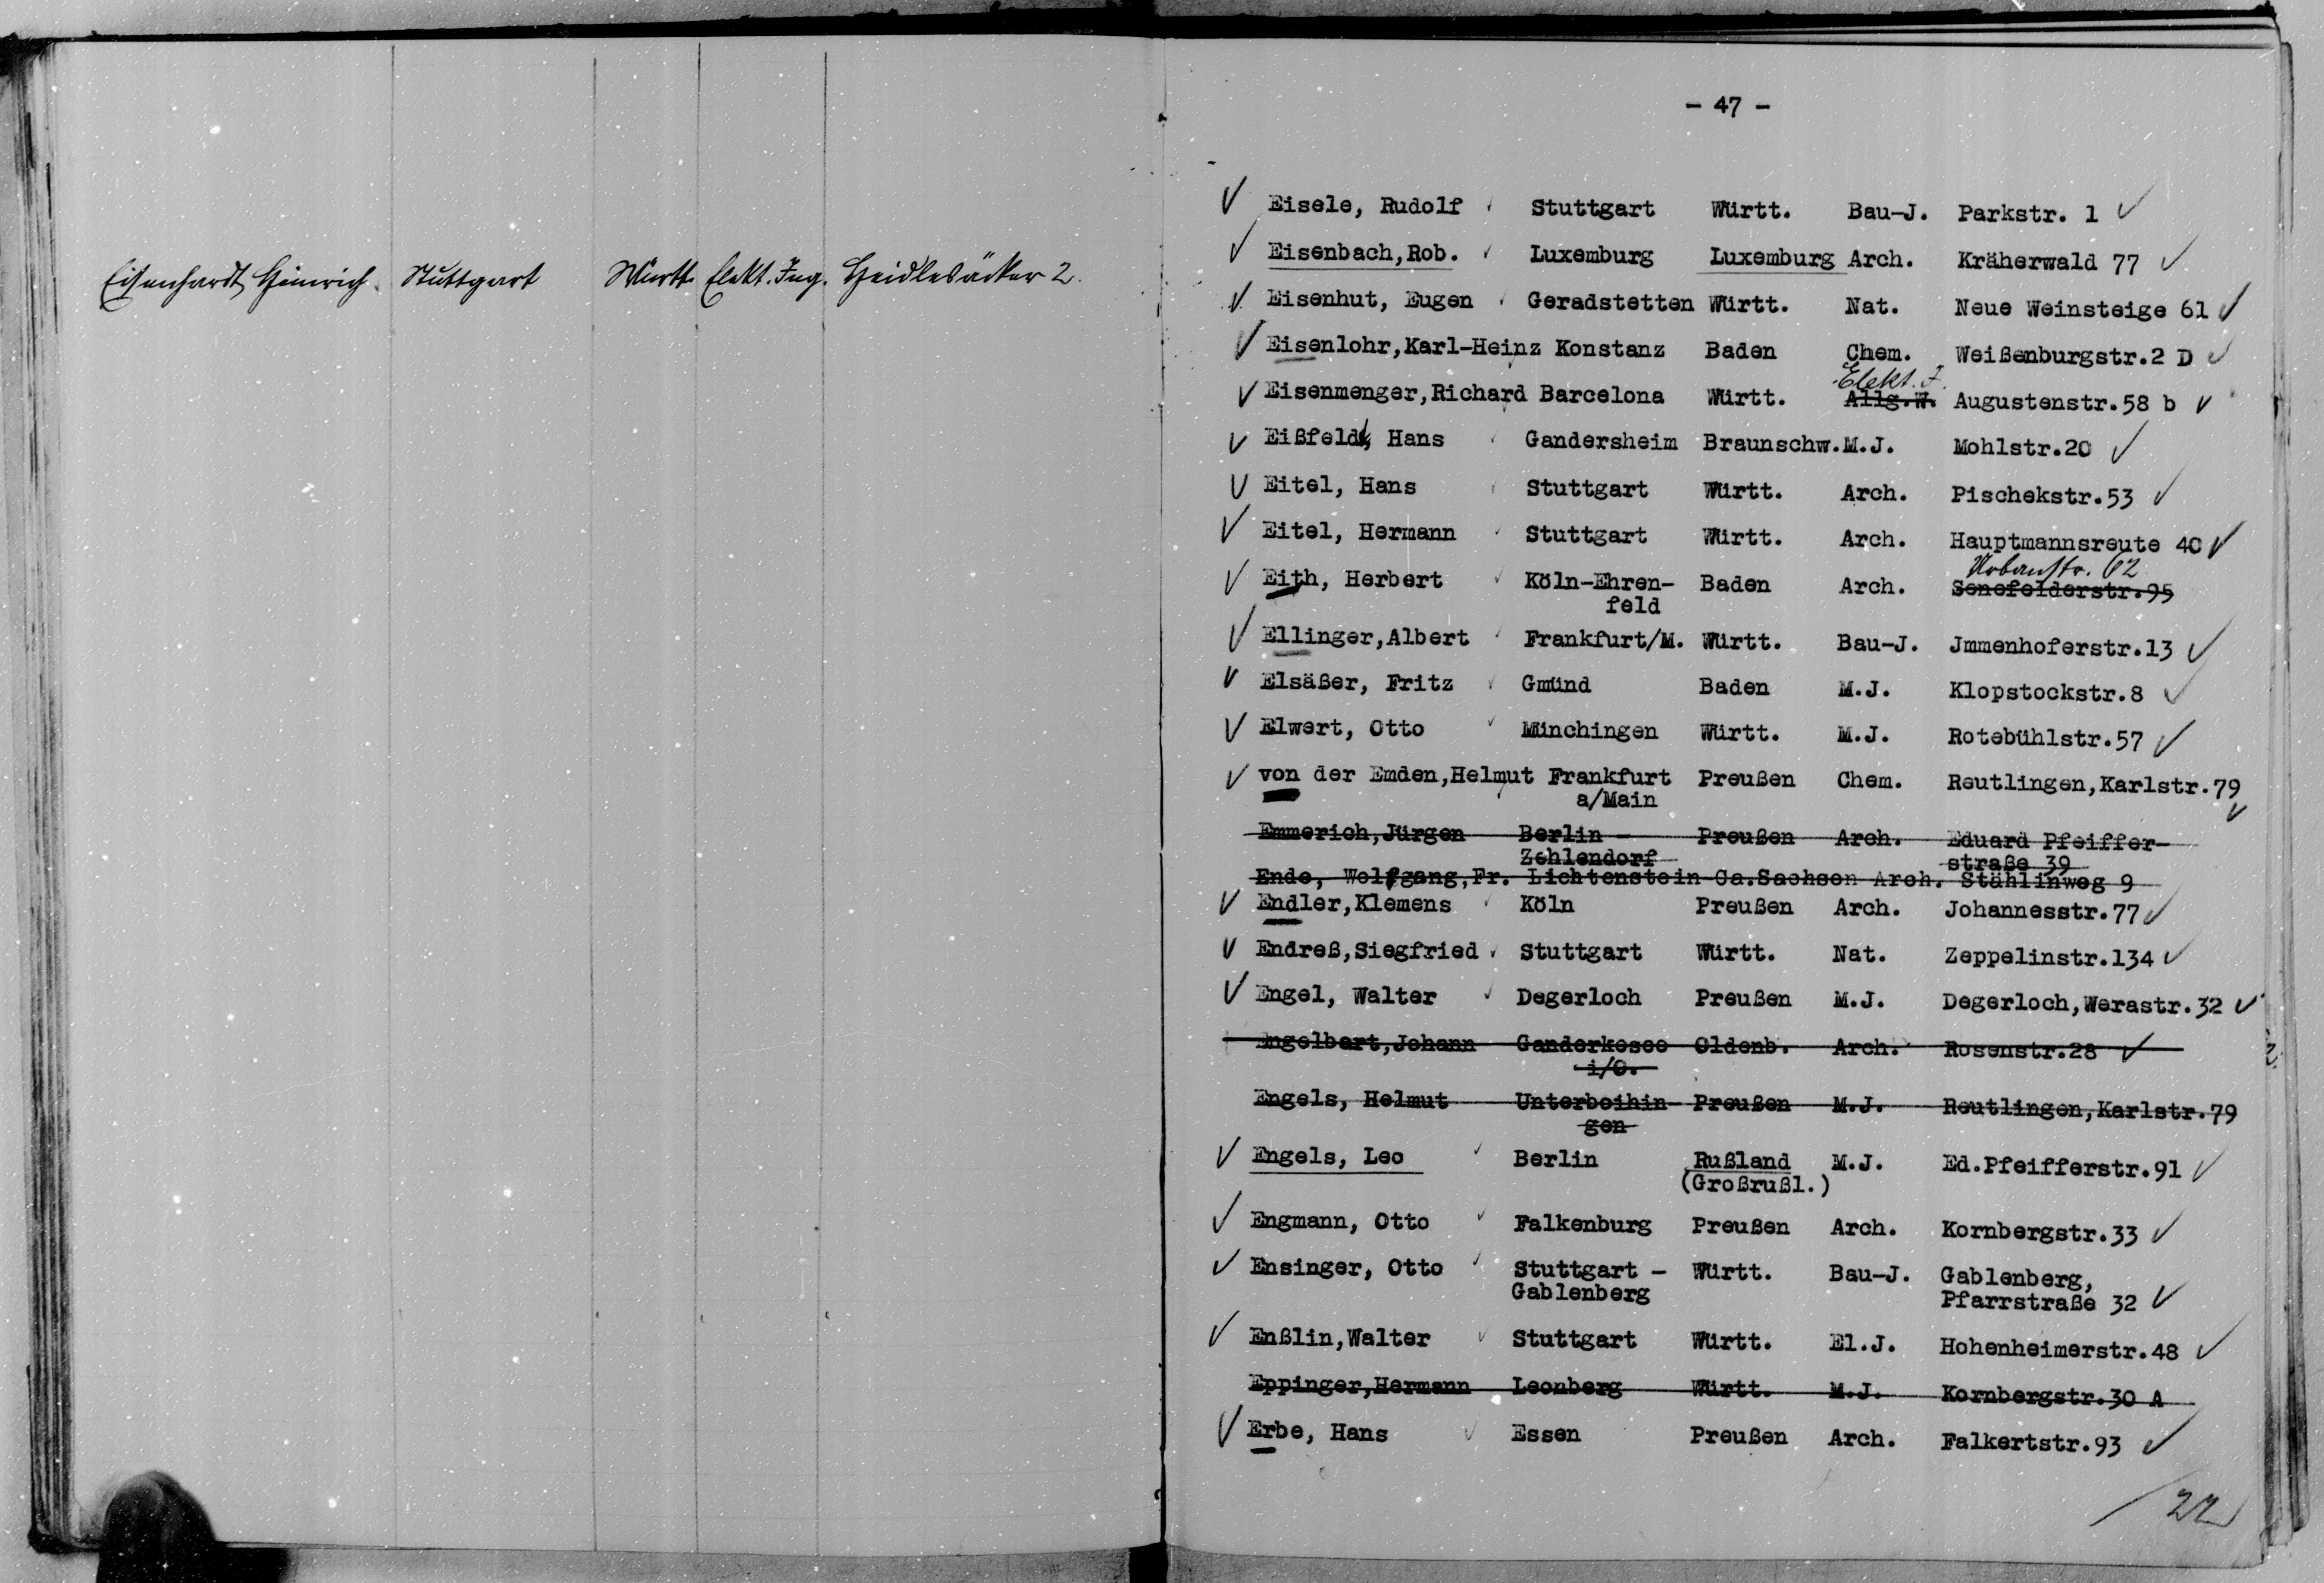 Eisenhardt, Heinrich. Stuttgart Württ. Elekt. Ing. Heidlesäcker 2.
- 47 -
Eisele, Rudolf Stuttgart Württ. Bau-J. Parkstr. 1
Eisenbach,Rob. Luxemburg Luxemburg Arch. Kräherwald 77
Eisenhut, Eugen Geradstetten Württ. Nat. Neue Weinsteige 61
Eisenlohr,Karl-Heinz Konstanz Baden Chem. Weißenburgstr.2 D
Elekt. J.
Eisenmenger,Richard Barcelona Württ. Allg.W. Augustenstr.58 b
Eißfeldt, Hans Gandersheim Braunschw.M.J. Mohlstr.20
Eitel, Hans Stuttgart Württ. Arch. Pischekstr.53
Eitel, Hermann Stuttgart Württ. Arch. Hauptmannsreute 40
Urbanstr. 62
Eith, Herbert Köln-Ehren- Baden Arch. Senefelderstr.95
feld
Ellinger,Albert Frankfurt/M. Württ. Bau-J. Jmmenhoferstr.13
Elsäßer, Fritz Gmünd Baden M.J. Klopstockstr.8
Elwert, Otto Münchingen Württ. M.J. Rotebühlstr.57
von der Emden,Helmut Frankfurt Preußen Chem. Reutlingen,Karlstr.79
a/Main
Emmerich,Jürgen Berlin - Preußen Arch. Eduard Pfeiffer-
Zehlendorf straße 39
Ende, Wolfgang,Fr. Lichtenstein Ca.Sachsen Arch. Stählinweg 9
Endler,Klemens Köln Preußen Arch. Johannesstr.77
Endreß,Siegfried Stuttgart Württ. Nat. Zeppelinstr.134
Engel, Walter Degerloch Preußen M.J. Degerloch,Werastr.32
Engelbart,Johann Ganderkesee Oldenb. Arch. Rosenstr.28
i/O.
Engels, Helmut Unterboihin- Preußen M.J. Reutlingen,Karlstr.79
gen
Engels, Leo Berlin Rußland M.J. Ed.Pfeifferstr.91
(Großrußl.)
Engmann, Otto Falkenburg Preußen Arch. Kornbergstr.33
Ensinger, Otto Stuttgart - Württ. Bau-J. Gablenberg,
Gablenberg Pfarrstraße 32
Enßlin,Walter Stuttgart Württ. El.J. Hohenheimerstr.48
Eppinger,Hermann Leonberg Württ. M.J. Kornbergstr.30 A
Erbe, Hans Essen Preußen Arch. Falkertstr.93
22